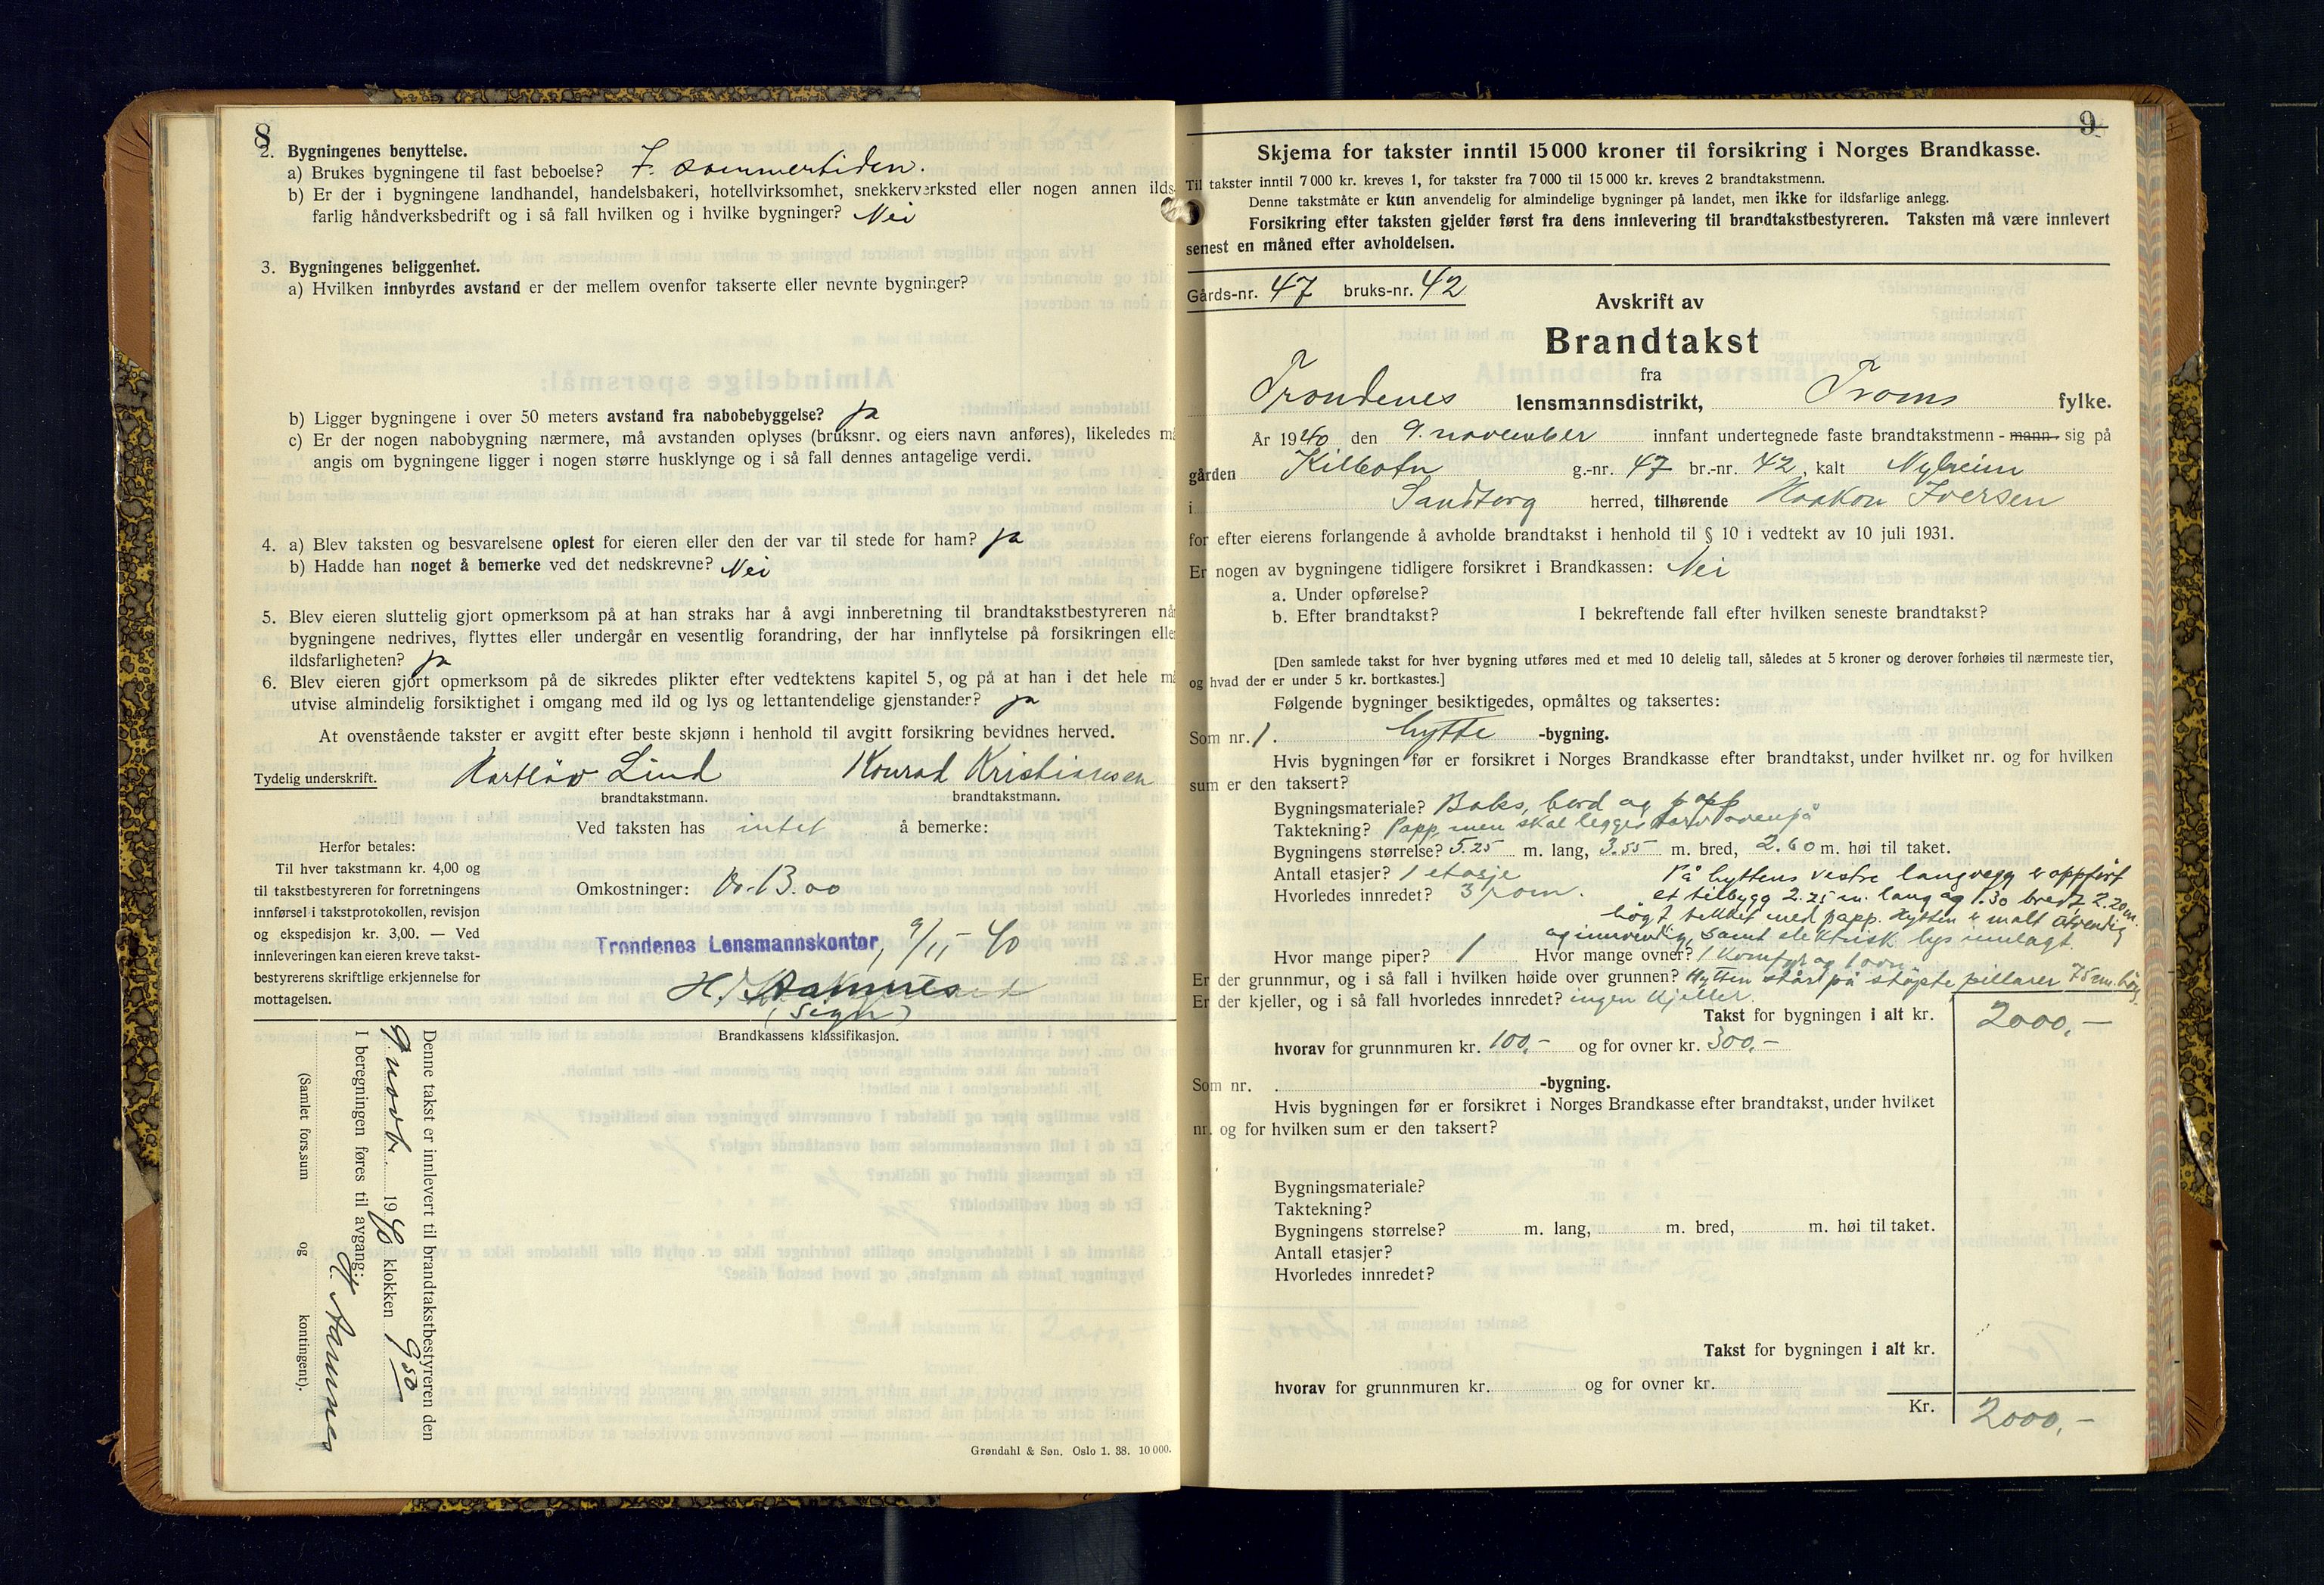 8
2. Bygningenes benyttelse.
a) Brukes bygningene til fast beboelse? I sommertiden.
b) Er der i bygningene landhandel, handelsbakeri, hotellvirksomhet, snekkerverksted eller nogen annen ilds-
farlig håndverksbedrift og i så fall hvilken og i hvilke bygninger? Nei
3. Bygningenes beliggenhet.
a) Hvilken innbyrdes avstand er der mellem ovenfor takserte eller nevnte bygninger?
b) Ligger bygningene i over 50 meters avstand fra nabobebyggelse? ja
c) Er der nogen nabobygning nærmere, må avstanden oplyses (bruksnr. og eiers navn anføres), likeledes må
angis om bygningene ligger i nogen større husklynge og i så fall dennes antagelige verdi.
4. a) Blev taksten og besvarelsene oplest for eieren eller den der var til stede for ham? ja
b) Hadde han noget å bemerke ved det nedskrevne? Nei
5. Blev eieren sluttelig gjort opmerksom på at han straks har å avgi innberetning til brandtakstbestyreren når
bygningene nedrives, flyttes eller undergår en vesentlig forandring, der har innflytelse på forsikringen eller
ildsfarligheten? ja
6. Blev eieren gjort opmerksom på de sikredes plikter efter vedtektens kapitel 5, og på at han i det hele må
utvise almindelig forsiktighet i omgang med ild og lys og lettantendelige gjenstander? ja
At ovenstående takster er avgitt efter beste skjønn i henhold til avgitt forsikring bevidnes herved.
Tydelig underskrift. Hartløv Lind Konrad Kristiansen
brandtakstmann. brandtakstmann.
Ved taksten has intet å bemerke:
Herfor betales:
Til hver takstmann kr. 4,00 og
til takstbestyreren for forretningens
innførsel i takstprotokollen, revisjon
og ekspedisjon kr. 3,00. — Ved
innleveringen kan eieren kreve takst-
bestyrerens skriftlige erkjennelse for
mottagelsen.
Omkostninger: 13.00
Trondenes Lensmannskontor, 9/11-40
H. Aamnes
(sign)
Brandkassens klassifikasjon.
Denne takst er innlevert til brandtakstbestyreren den
9 novbr. 1940 klokken 9 50
I beregningen føres til avgang:
H. Aamnes
(Samlet fors.sum og kontingent).
Grøndahl & Søn. Oslo 1. 38. 10 000.
9
Skjema for takster inntil 15 000 kroner til forsikring i Norges Brandkasse.
Til takster inntil 7 000 kr. kreves 1, for takster fra 7 000 til 15 000 kr. kreves 2 brandtakstmenn.
Denne takstmåte er kun anvendelig for almindelige bygninger på landet, men ikke for ildsfarlige anlegg.
Forsikring efter taksten gjelder først fra dens innlevering til brandtakstbestyreren. Taksten må være innlevert
senest en måned efter avholdelsen.
Gårds-nr. 47 bruks-nr. 42
Avskrift av
Brandtakst
fra
Trondenes lensmannsdistrikt, Troms fylke.
År 1940 den 9. november innfant undertegnede faste brandtakstmenn - mann - sig på
gården Kilbotn g.-nr. 47 br.-nr. 42, kalt Nyheim
i Sandtorg herred, tilhørende Haakon Iversen
for efter eierens forlangende å avholde brandtakst i henhold til § 10 i vedtekt av 10 juli 1931.
Er nogen av bygningene tidligere forsikret i Brandkassen: Nei
a. Under opførelse?
b. Efter brandtakst? I bekreftende fall efter hvilken seneste brandtakst?
[Den samlede takst for hver bygning utføres med et med 10 delelig tall, således at 5 kroner og derover forhøies til nærmeste tier,
og hvad der er under 5 kr. bortkastes.]
Følgende bygninger besiktigedes, opmåltes og taksertes:
Som nr. 1. hytte -bygning.
Hvis bygningen før er forsikret i Norges Brandkasse efter brandtakst, under hvilket nr. og for hvilken
sum er den taksert?
Bygningsmateriale? Baks, bord og papp
Taktekning? Papp, men skal legges torv ovenpå
Bygningens størrelse? 5.25 m. lang, 3.55 m. bred, 2.60 m. høi til taket.
Antall etasjer? 1 etasje På hyttens vestre langvegg er oppført
Hvorledes innredet? 3 rom. et tilbygg 2.25 m. lang og 1.30 bredt 2.20 m.
høgt, tekket med papp. Hytten er malt utvendig
og innvendig, samt elektrisk lys innlagt.
Hvor mange piper? 1 Hvor mange ovner? 1 Komfyr og 1 ovn
Er der grunnmur, og i så fall i hvilken høide over grunnen? Hytten står på støpte pillarer 75 cm. høg.
Er der kjeller, og i så fall hvorledes innredet? ingen kjeller.
Takst for bygningen i alt kr. 2000,-
hvorav for grunnmuren kr. 100,- og for ovner kr. 300,-
Som nr. -bygning.
Hvis bygningen før er forsikret i Norges Brandkasse efter brandtakst, under hvilket
nr. og for hvilken sum er den taksert?
Bygningsmateriale?
Taktekning?
Bygningens størrelse? m. lang, m. bred, m. høi til taket.
Antall etasjer?
Hvorledes innredet?
Takst for bygningen i alt kr.
hvorav for grunnmuren kr. og for ovner kr.
Kr. 2000,-